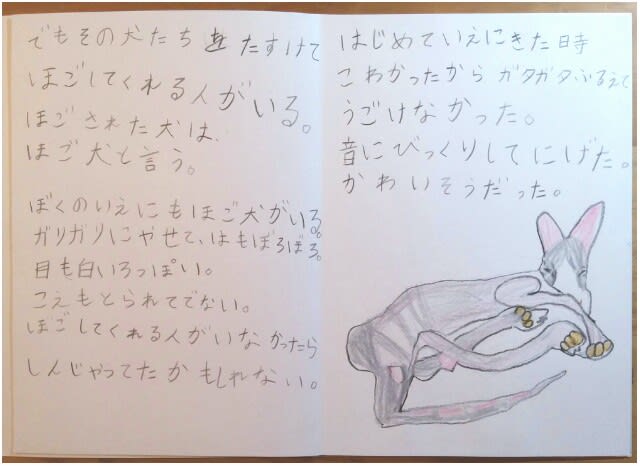 でもその犬たちをたすけて
ほごしてくれる人がいる。
ほごされた犬は、
ほご犬と言う。
ぼくのいえにもほご犬がいる。
ガリガリにやせて、はもぼろぼろ。
目も白いろっぽい。
こえもとられてでない。
ほごしてくれる人がいなかったら
しんじゃってたかもしれない。
はじめていえにきた日時
こわかったから ガタガタふるえて
うごけなかった。
音にびっくりしてにげた。
かわいそうだった。